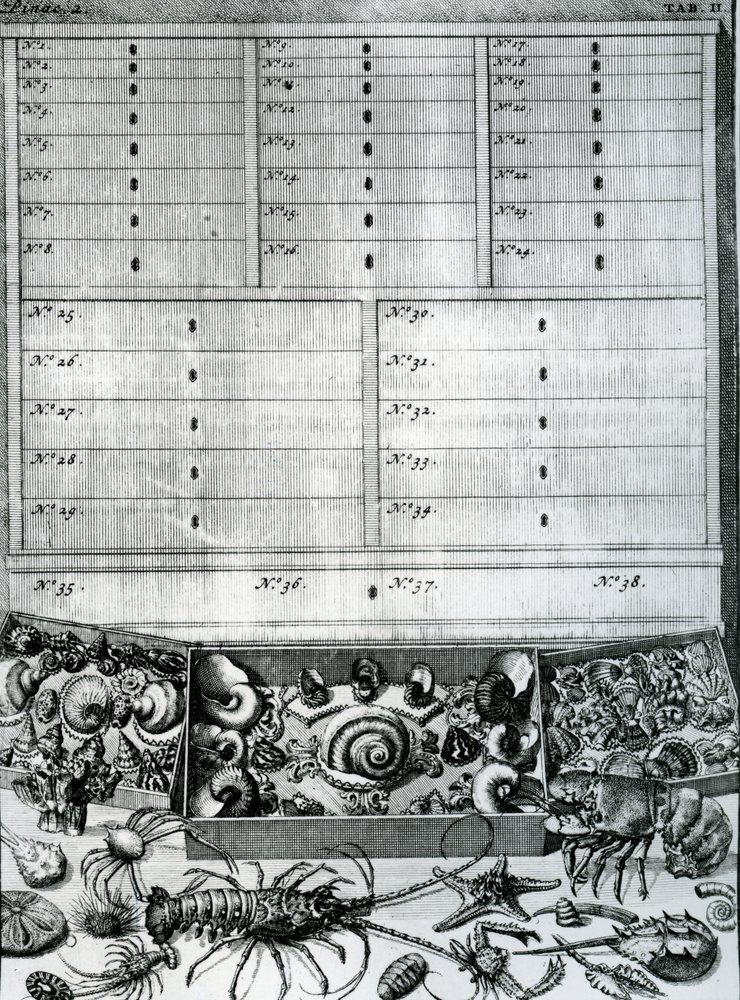 Pinac. 2.
TAB. II
N.º 1.
N.º 2.
N.º 3
N.º 4.
N.º 5.
N.º 6.
N.º 7.
N.º 8.
N.º 9.
N.º 10.
N.º 12.
N.º 13.
N.º 14.
N.º 15.
N.º 16.
N.º 17.
N.º 18.
N.º 19.
N.º 20.
N.º 21.
N.º 22.
N.º 23.
N.º 24.
N.º 25.
N.º 26.
N.º 27.
N.º 28.
N.º 29.
N.º 30.
N.º 31.
N.º 32.
N.º 33.
N.º 34.
N.º 35.
N.º 36.
N.º 37.
N.º 38.